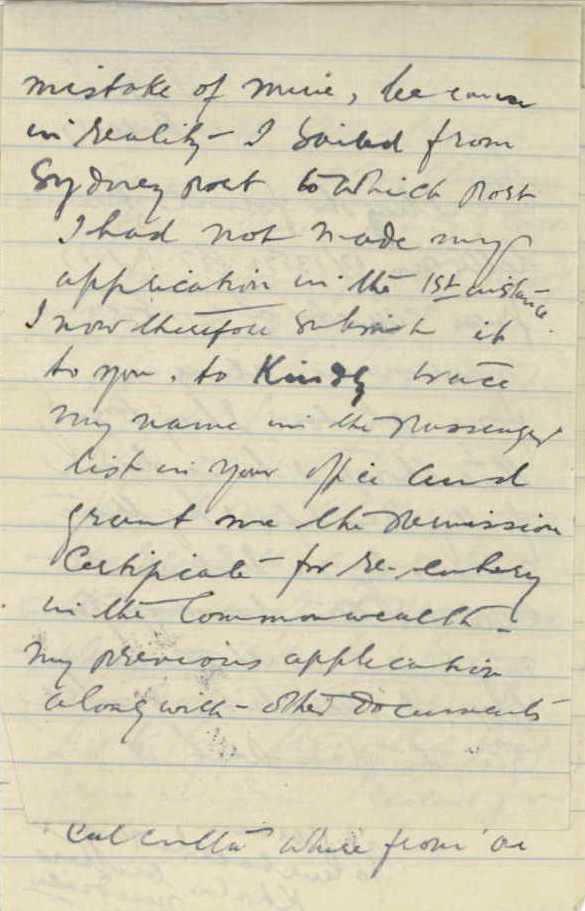 mistake of mine, because
in reality - I Sailed from
Sydney port to which port
I had not made my
application in the 1st instance.
I now therefore submit it
to you, to Kindly trace
my name in the passenger
list in your office and
grant me the permission
Certificate for re-entery
in the Commonwealth -
my previous application
along with - other documents
Calcutta where from